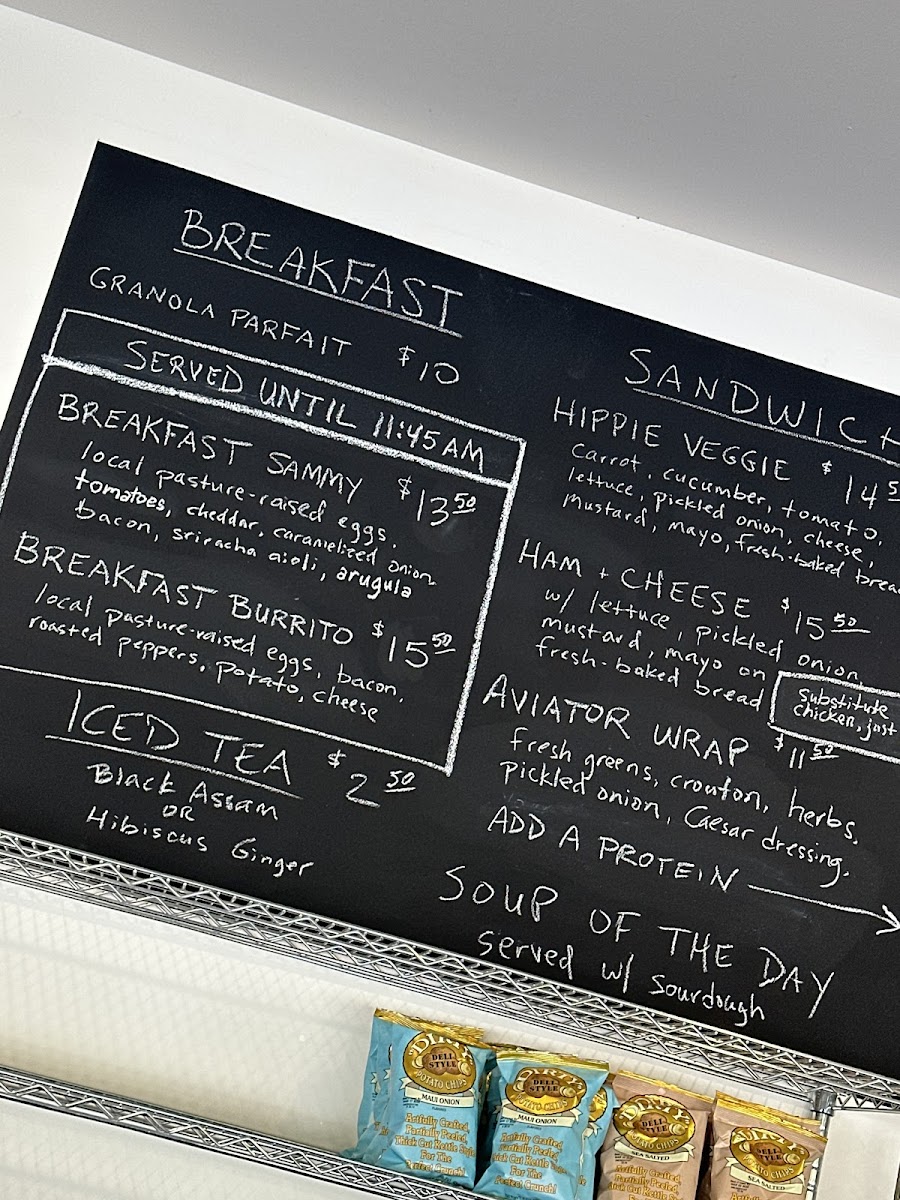 BREAKFAST
GRANOLA PARFAIT $10
SERVED UNTIL 11:45AM
BREAKFAST SAMMY $13 50
local pasture-raised eggs,
tomatoes, cheddar, caramelized onion
bacon, sriracha aioli, arugula
BREAKFAST BURRITO $15 50
local pasture-raised eggs, bacon,
roasted peppers, potato, cheese
ICED TEA $2 50
Black Assam
OR
Hibiscus Ginger
SANDWICH
HIPPIE VEGGIE $14 5
carrot, cucumber, tomato,
lettuce, pickled onion, cheese,
mustard, mayo, fresh-baked brea
HAM + CHEESE $15 50
w/ lettuce, pickled onion,
mustard, mayo on
fresh-baked bread
substitute
chicken, just
AVIATOR WRAP $11 50
fresh greens, crouton, herbs,
pickled onion, Caesar dressing.
ADD A PROTEIN
SOUP OF THE DAY
served w/ sourdough
DIRTY
DELI
STYLE
POTATO CHIPS
MAUI ONION
Artfully Crafted,
Partially Peeled,
Thick Cut Kettle Style
For The
Perfect Crunch!
DIRTY
DELI
STYLE
POTATO CHIPS
MAUI ONION
Artfully Crafted,
Partially Peeled,
Thick Cut Kettle
For The
Perfect Crunch!
DIRTY
DELI
STYLE
POTATO CHIPS
SEA SALTED
Artfully Crafted,
Partially Peeled,
DIRTY
DELI
STYLE
POTATO CHIPS
SEA SALTED